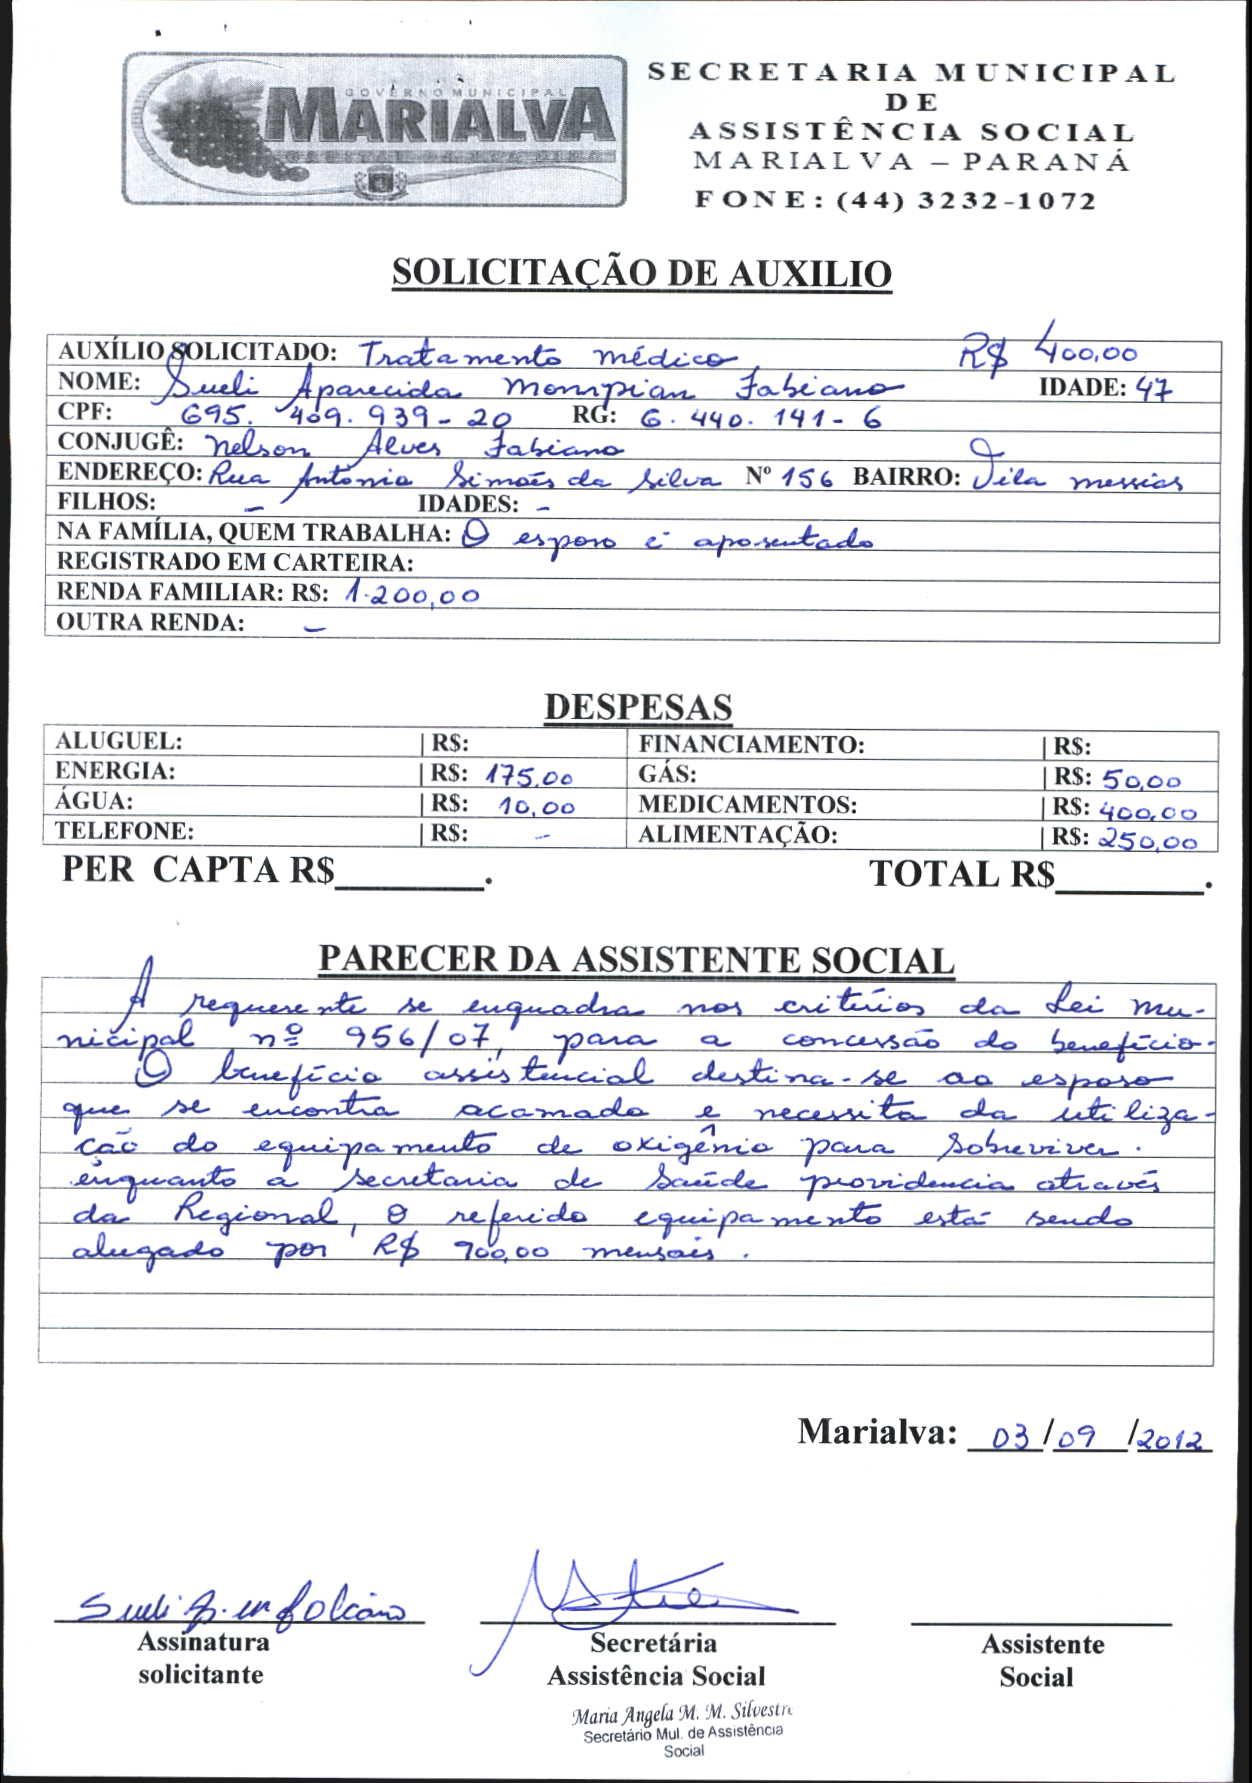 GOVERNO MUNICIPAL
MARIALVA
SECRETARIA MUNICIPAL
DE
ASSISTÊNCIA SOCIAL
MARIALVA – PARANÁ
FONE: (44) 3232-1072
SOLICITAÇÃO DE AUXILIO
AUXÍLIO SOLICITADO: Tratamento médico R$ 400,00
NOME: Sueli Aparecida Mompian Fabiano IDADE: 47
CPF: 695.409.939-20 RG: 6.440.141-6
CONJUGÊ: Nelson Alves Fabiano
ENDEREÇO: Rua Antônio Simões da Silva Nº 156 BAIRRO: Vila Messias
FILHOS: - IDADES: -
NA FAMÍLIA, QUEM TRABALHA: O esposo é aposentado
REGISTRADO EM CARTEIRA:
RENDA FAMILIAR: R$: 1.200,00
OUTRA RENDA: -
DESPESAS
ALUGUEL: | R$: FINANCIAMENTO: | R$:
ENERGIA: | R$: 175,00 GÁS: | R$: 50,00
ÁGUA: | R$: 10,00 MEDICAMENTOS: | R$: 400,00
TELEFONE: | R$: - ALIMENTAÇÃO: | R$: 250,00
PER CAPTA R$________. TOTAL R$________.
PARECER DA ASSISTENTE SOCIAL
A requerente se enquadra nos critérios da Lei Mu-
nicipal nº 956/07, para a concessão do benefício.
O benefício assistencial destina-se ao esposo
que se encontra acamado e necessita da utiliza-
ção do equipamento de oxigênio para sobreviver.
enquanto a secretaria de Saúde providencia através
da Regional, o referido equipamento está sendo
alugado por R$ 900,00 mensais.
Marialva: 03/09/2012
Assinatura
solicitante
Secretária
Assistência Social
Assistente
Social
Maria Angela M. M. Silvestre
Secretário Mul. de Assistência
Social